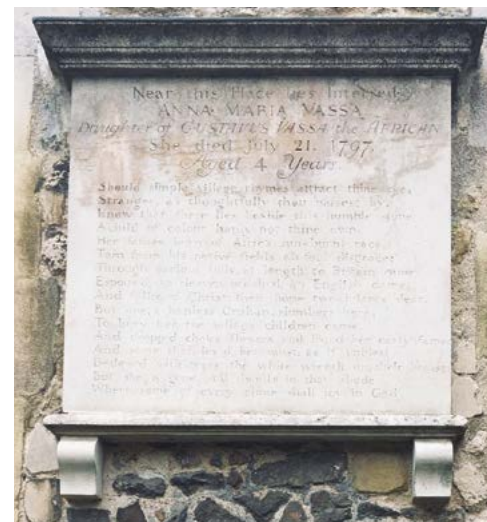 Near this Place lies Interred
ANNA MARIA VASSA
Daughter of GUSTAVUS VASSA the AFRICAN
She died July 21. 1797
Aged 4 Years.
Should simple village rhymes attract thine eye,
Stranger, as thoughtfully thou passest by,
Know that there lies beside this humble stone
A child of colour haply not thine own.
Her father born of Afric's sun-burnt race,
Torn from his native fields, ah foul disgrace
Through various toils, at length to Britain came
Espous'd, so Heaven ordain'd, an English dame,
And follow'd Christ; their hope two infants dear.
But one, a hapless Orphan, slumbers here.
To bury her the village children came.
And dropp'd choice flowers, and lisp'd her early fame
And some that lov'd her most as if unblest
Bedew'd with tears the white wreath on their breast
But she is gone and dwells in that abode
Where some of every clime shall joy in God.